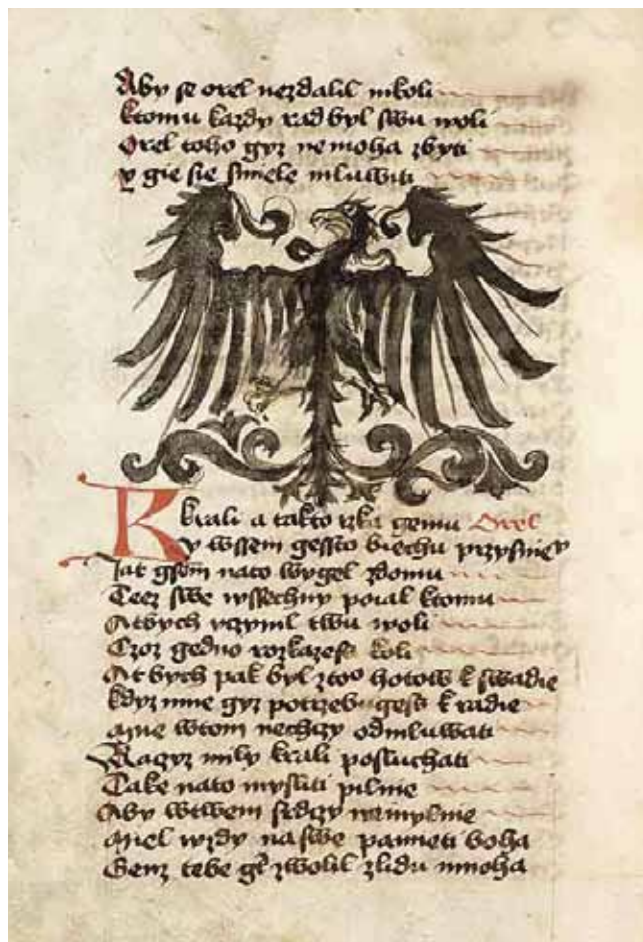 Aby se orel nezdalil nikoli
ktomu kazdy rad byl swu woli
Orel toho gyz nemoha zbyti
y gie sie smiele mluwiti
K krali a takto rzka gemu Orel
y wssem gessto biechu przysnie
Jat gsem nato wygel zdomu
Teez swe wssechny poial ktomu
Atbych vczynil twu woli
Czoz gedno rozkazess koli
At bych pak byl ztoo hotow k swadie
kdyz mne gyz potrzebugess k radie
nechczy odmluwati
Raczyz mily krali posluchati
Take nato mysliti pilnie
Aby wtwem srdczy nemylnie
Miel wzdy naswe pamieti boha
Genz tebe gt zwolil zlidu mnoha